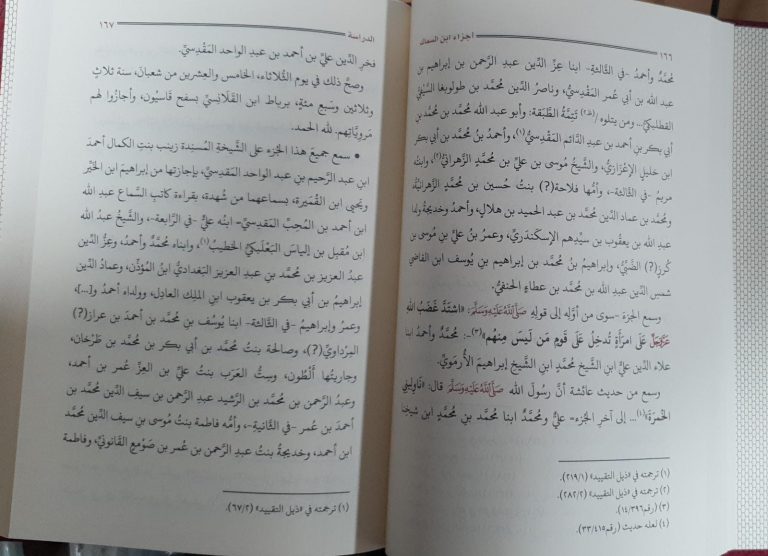 ١٦٦ أجزاء ابن السماك
محمَّدٌ وأحمدُ -في الثَّالثة- ابنا عِزِّ الدِّين عبدِ الرَّحمن بن إبراهيم بن
عبد الله بن أبي عُمر المَقْدِسيُّ، وناصرُ الدِّين محمَّد بن طولوبغا السَّيْفيُّ
القطلبكيُّ... ومن يتلوه/(ظ٢) تَتِمَّةُ الطَّبَقة: وأبو عبد الله محمَّد بن محمَّد بن
أبي بكر بن أحمد بن عبد الدَّائم المَقْدِسيُّ(١)، وأحمدُ بنُ محمَّد بن أبي بكر
ابن خليل الإعْزازيُّ، والشَّيخُ موسى بن عليِّ بن محمَّدٍ الزَّهرانيُّ(٢)، وابنتُه
مريمُ -في الثَّالثة-، وأمُّها فلاحة(؟) بنتُ حُسين بن محمَّدٍ الزَّهرانيَّة
ومحمَّد بن عماد الدِّين محمَّد بن عبد الحميد بن هلال، وأحمدُ وخديجةُ ولدا
عبدِ الله بن يعقُوب بن سيِّدِهم الإسكَندَريِّ، وعمرُ بنُ عليِّ بن موسى بن
كُرز(؟) الضَّبِّيُّ، وإبراهيمُ بنُ محمَّد بن إبراهيم بنِ يُوسف ابن القاضي
شمسِ الدِّين عبدِ الله بن محمَّد بن عطاءٍ الحنفيُّ.
وسمع الجزءَ -سوى من أوَّلِه إلى قولِه صَلَّى اللَّهُ عَلَيْهِ وَسَلَّمَ: «اشتَدَّ غَضَبُ اللهِ
عَزَّوَجَلَّ عَلَى امرَأةٍ تُدخِلُ عَلَى قَومٍ مَن لَيسَ مِنهُم»(٣)-: محمَّدٌ وأحمدُ ابنا
علاء الدِّين عليِّ ابنِ الشَّيخ محمَّدٍ ابنِ الشَّيخ إبراهيمَ الأُرمَويِّ.
وسمع من حديث عائشة أنَّ رسُولَ الله صَلَّى اللَّهُ عَلَيْهِ وَسَلَّمَ قال: «نَاوِلِيني
الخُمرَةَ»(٤)... إلى آخرِ الجُزء= عليٌّ ومحمَّدٌ ابنا محمَّد بنِ محمَّدٍ ابن شيخنا
(١) ترجمته في «ذيل التقييد» (٢١٩/١).
(٢) ترجمته في «ذيل التقييد» (٢٨٢/٢).
(٣) (رقم١٤/٣٩٦).
(٤) لعله حديث (رقم٣٣/٤١٥).
الدراسة ١٦٧
فخرِ الدِّين عليِّ بن أحمد بن عبد الواحد المَقْدِسيِّ.
وصحَّ ذلك في يوم الثُّلاثاء، الخامس والعشرين من شعبانَ، سنة ثلاثٍ
وثلاثين وسَبع مئةٍ، برباط ابن القَلَانِسيِّ بسفح قَاسيُون، وأجازُوا لهم
مَرويَّاتِهم. لله الحمد.
• سمع جميعَ هذا الجُزء على الشَّيخةِ المُسنِدة زينب بنتِ الكمال أحمدَ
ابنِ عبد الرَّحيم بنِ عبد الواحد المَقدِسيِّ، بإجازتها من إبراهيمَ ابن الخَيِّر
ويَحيى ابنِ القُمَيرة، بسماعهما من شُهدة، بقراءة كاتبِ السَّماع عبدِ الله
ابن أحمد بن المُحِبِّ المَقدِسيِّ= ابنُه عليٌّ -في الرَّابعة-، والشَّيخُ عبدُ الله
ابن مُقبِل بن إلياسَ البَعْلَبَكيُّ الخطيبُ(١)، وابناه محمَّدٌ وأحمدُ، وعِزُّ الدِّين
عبدُ العزيز بن محمَّد بنِ عبدِ العزيز البَغداديُّ ابنُ المُؤذِّن، وعمادُ الدِّين
إبراهيمُ بن أبي بكر بن يعقوب ابنِ المَلِك العادِل، وولداه أحمدُ و[...]،
وعمرُ وإبراهيمُ -في الثَّالثة- ابنا يُوسُف بنِ محمَّد بن أحمدَ بن عراز(؟)
المِرْداويِّ(؟)، وصالحة بنتُ محمَّد بنِ أبي بكر بن محمَّد بن طَرْخان،
وجاريتُها أَلْطُون، وستُّ العرَب بنتُ عليِّ بن العِزِّ عُمر بن أحمد،
وعبدُ الرَّحمن بن محمَّد بن الرَّشيد عبدِ الرَّحمن بن سيفِ الدِّين محمَّد بن
أحمدَ بن عُمر -في الثَّانية-، وأمُّه فاطمة بنتُ مُوسى بنِ سيف الدِّين محمَّد
ابن أحمد، وخديجةُ بنتُ عبدِ الرَّحمن بن عُمر بن صَوْمعٍ القانونيِّ، وفاطمة
(١) ترجمته في «ذيل التقييد» (٦٧/٢).